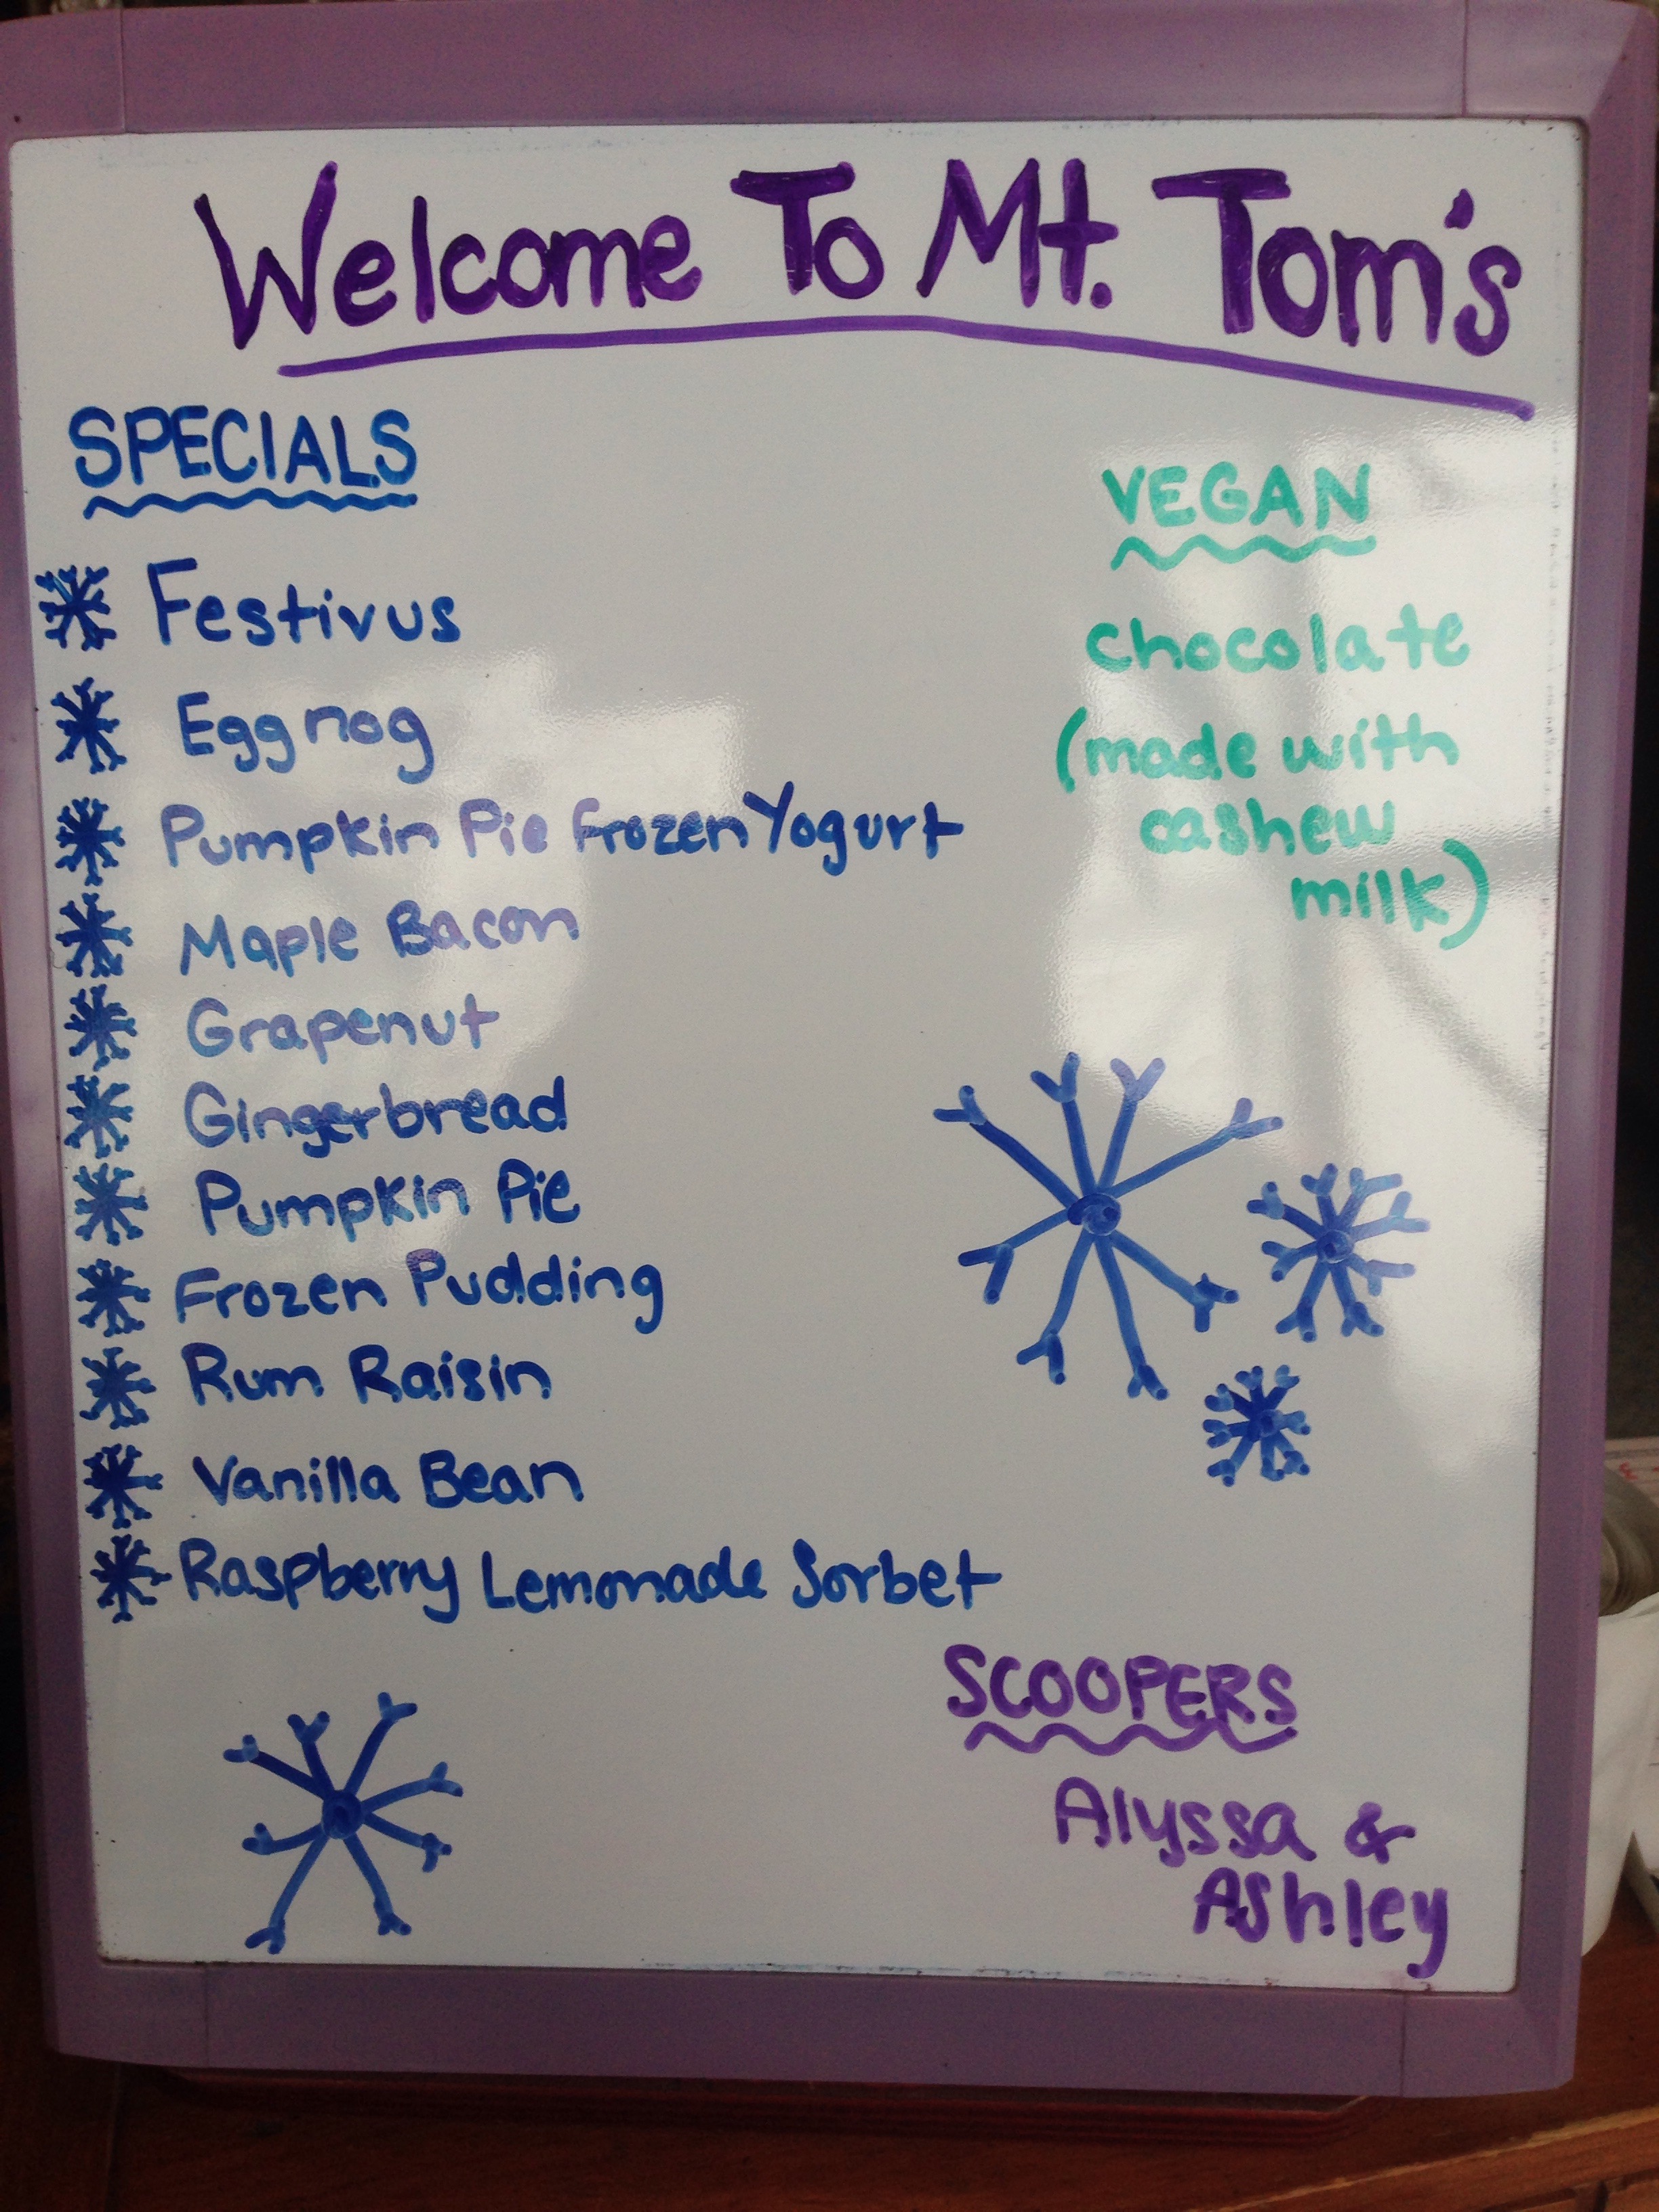 Welcome To Mt. Tom's
SPECIALS
Festivus
Eggnog
Pumpkin Pie Frozen Yogurt
Maple Bacon
Grapenut
Gingerbread
Pumpkin Pie
Frozen Pudding
Rum Raisin
Vanilla Bean
Raspberry Lemonade Sorbet
VEGAN
chocolate
(made with
cashew
milk)
SCOOPERS
Alyssa &
Ashley